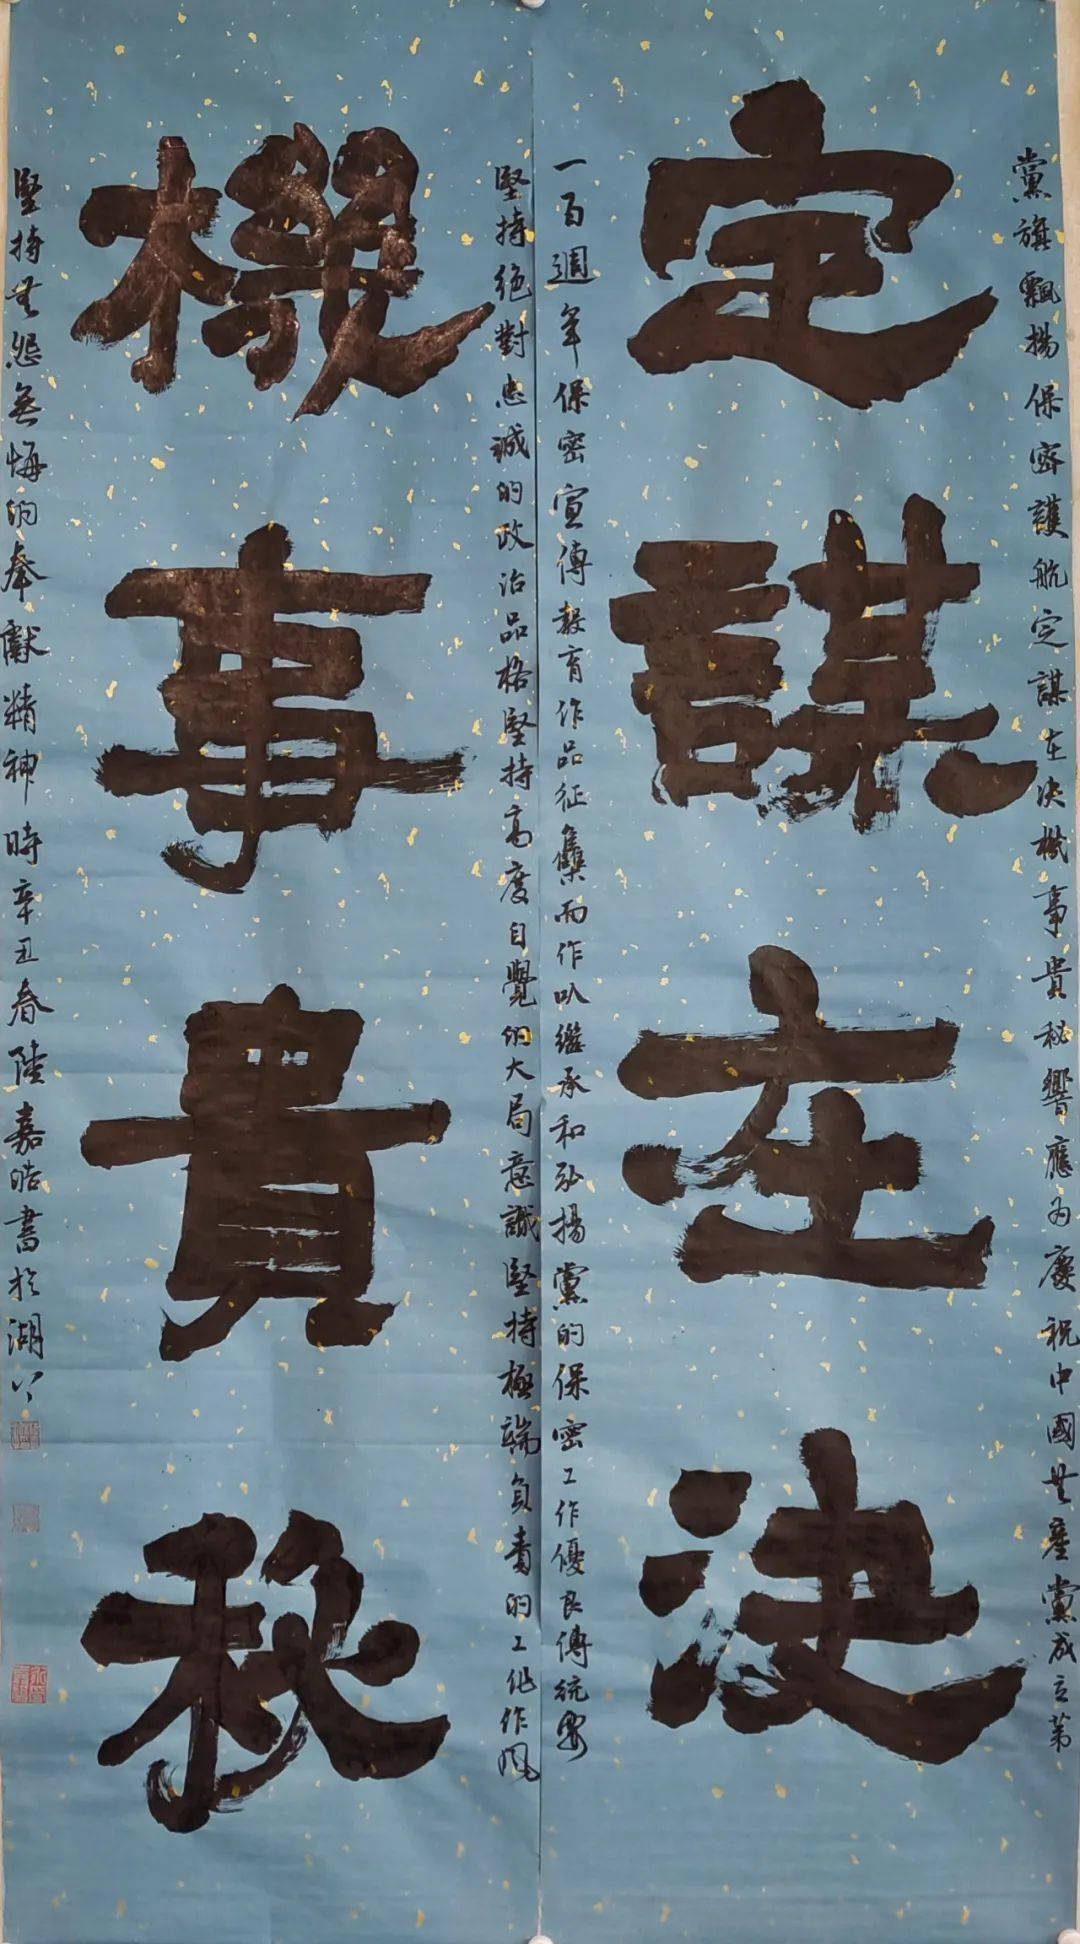 黨旗飄揚保密護航定謀在決機事貴秘響應為慶祝中國共產黨成立第
定謀在決
一百週年保密宣傳教育作品征集而作以繼承和弘揚黨的保密工作優良傳統要
堅持絶對忠誠的政治品格堅持高度自覺的大局意識堅持極端負責的工作作風
機事貴秘
堅持無怨無悔的奉獻精神時辛丑春陸嘉皓書於湖上